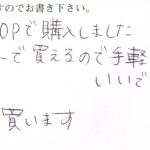 すのでお書き下さい。
OPで購入しました
ーで買えるので手軽
いいで
買います